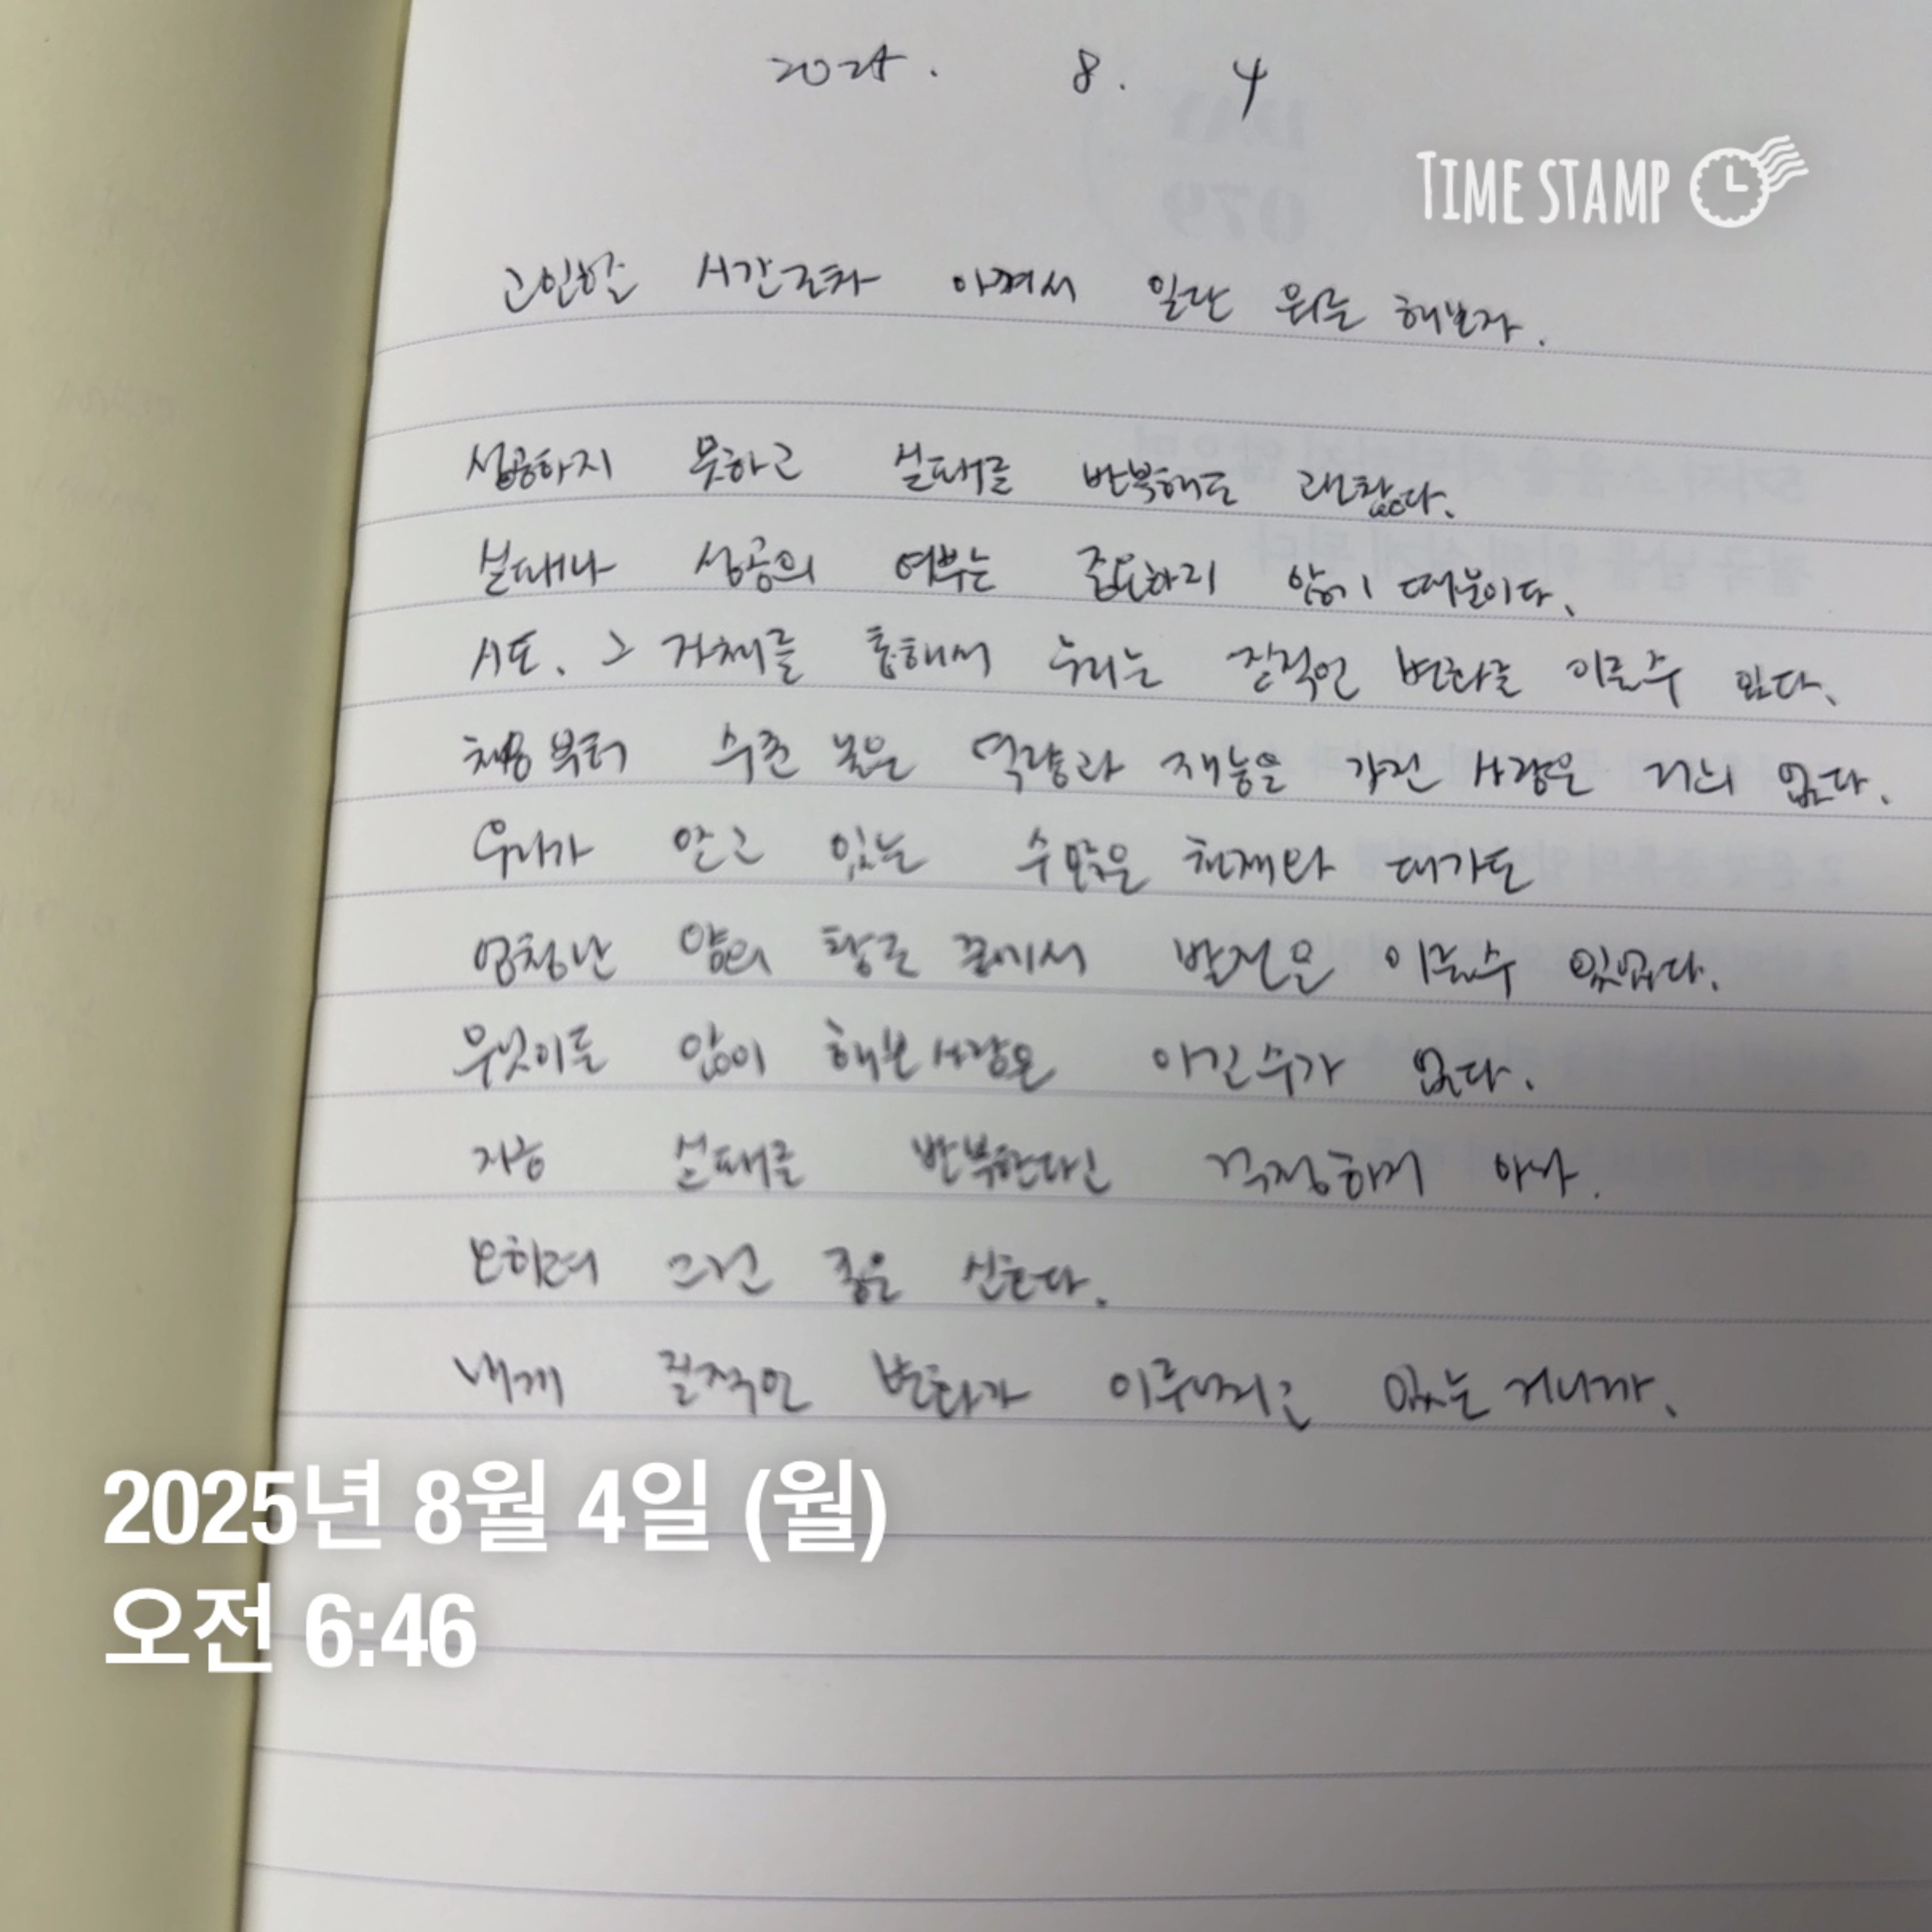 2025. 8. 4
TIME STAMP
고민할 시간조차 아껴서 일단 뭐든 해보자.
성공하지 못하고 실패를 반복해도 괜찮다.
실패나 성공의 여부는 중요하지 않기 때문이다.
시도. 그 자체를 통해서 우리는 질적인 변화를 이룰수 있다.
처음부터 수준 높은 역량과 재능을 가진 사람은 거의 없다.
우리가 알고 있는 수많은 천재와 대가도
엄청난 양의 끝에서 발전을 이룰수 있었다.
무엇이든 많이 해본 사람은 이길 수가 없다.
지금 실패를 반복한다고 걱정하지 마라.
오히려 그건 좋은 신호다.
내게 질적인 변화가 이루어지고 있는 거니까.
2025년 8월 4일 (월)
오전 6:46